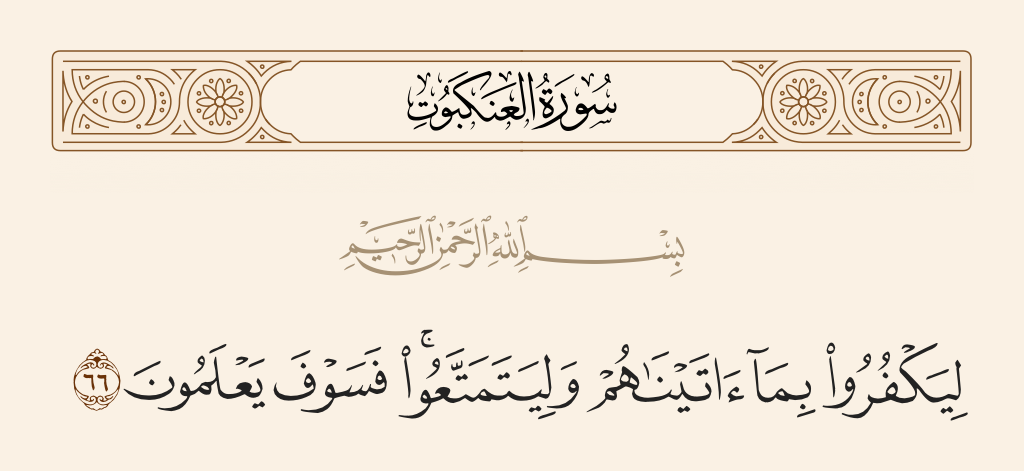 سُورَةُ العَنكَبُوتِ
بِسْمِ ٱللَّهِ ٱلرَّحْمَٰنِ ٱلرَّحِيمِ
لِيَكْفُرُوا۟ بِمَآ ءَاتَيْنَٰهُمْ وَلِيَتَمَتَّعُوا۟ ۚ فَسَوْفَ يَعْلَمُونَ ٦٦